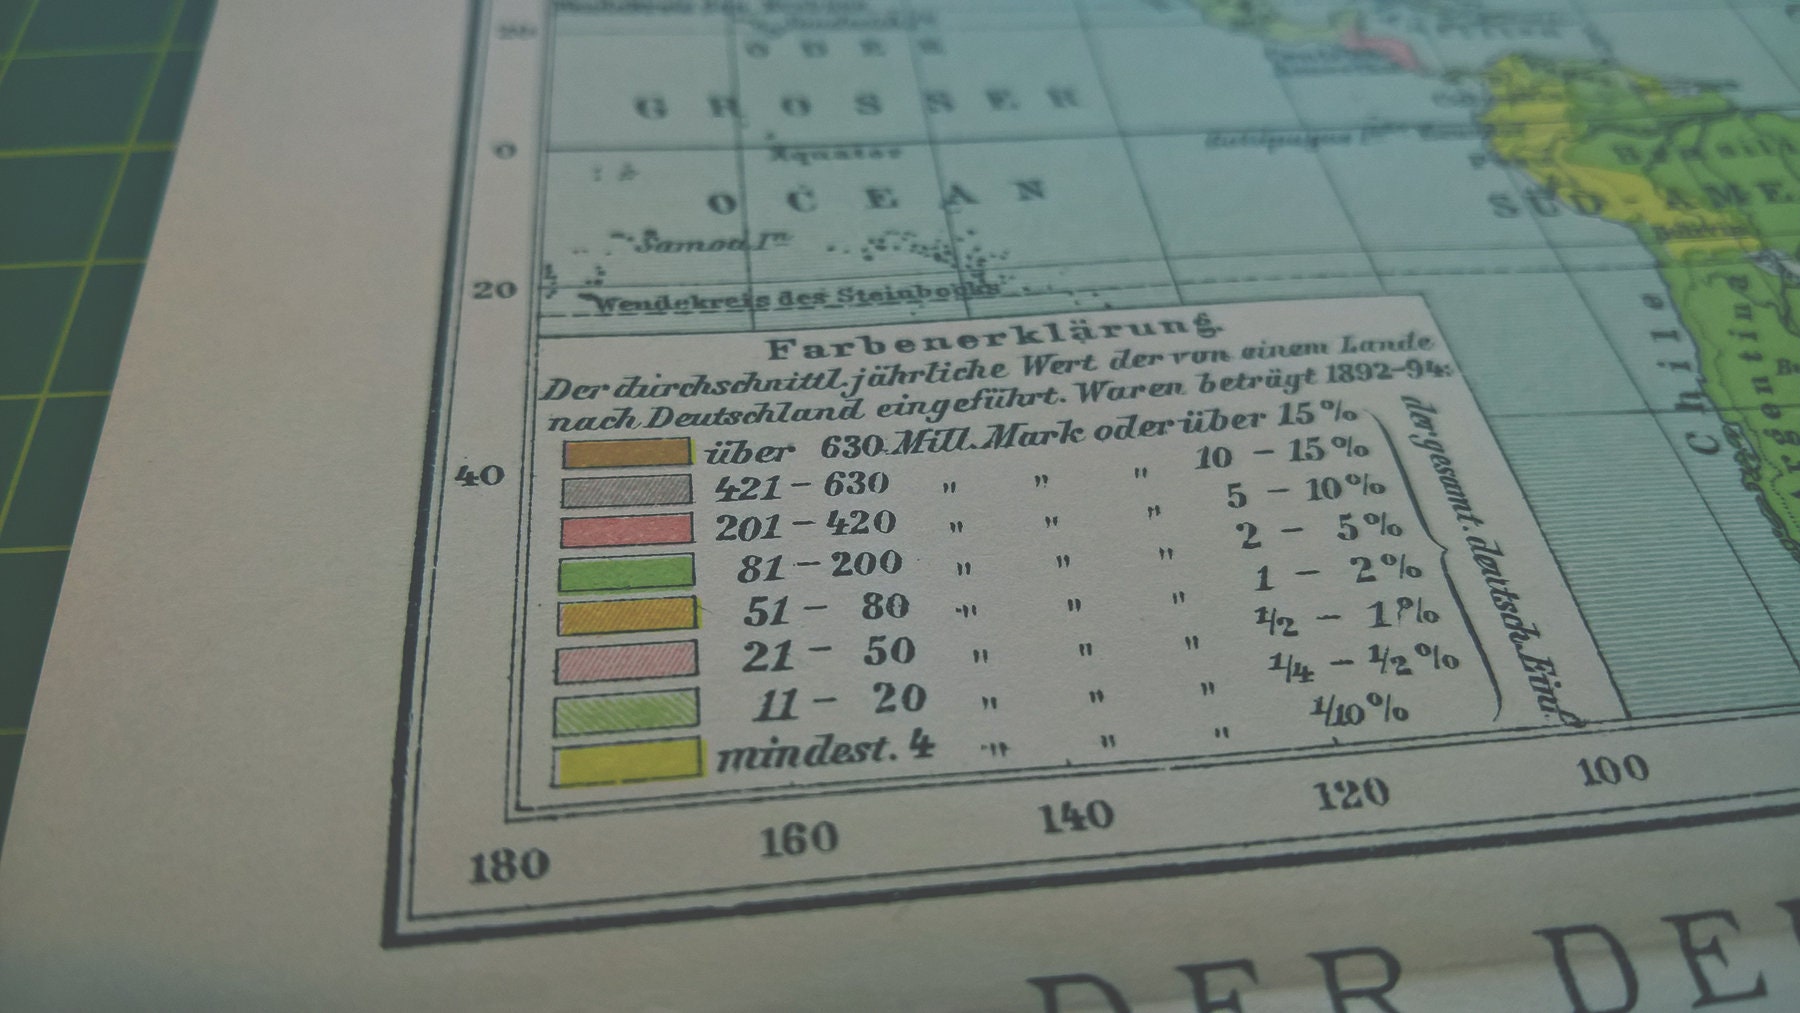 G R O S S E R
0
Äquator
O C E A N
SÜD-AME
Samoa In
20
Wendekreis des Steinbocks
Chile
Farbenerklärung.
Der durchschnittl. jährliche Wert der von einem Lande
nach Deutschland eingeführt. Waren beträgt 1892-94:
über 630 Mill. Mark oder über 15%
421-630 " " " 10 - 15%
201-420 " " " 5 - 10%
81-200 " " " 2 - 5%
51- 80 " " " 1 - 2%
21- 50 " " " 1/2 - 1%
11- 20 " " " 1/4 - 1/2%
mindest. 4 " " " 1/10%
der gesamt. deutsch. Einf.
40
180 160 140 120 100
DER DE